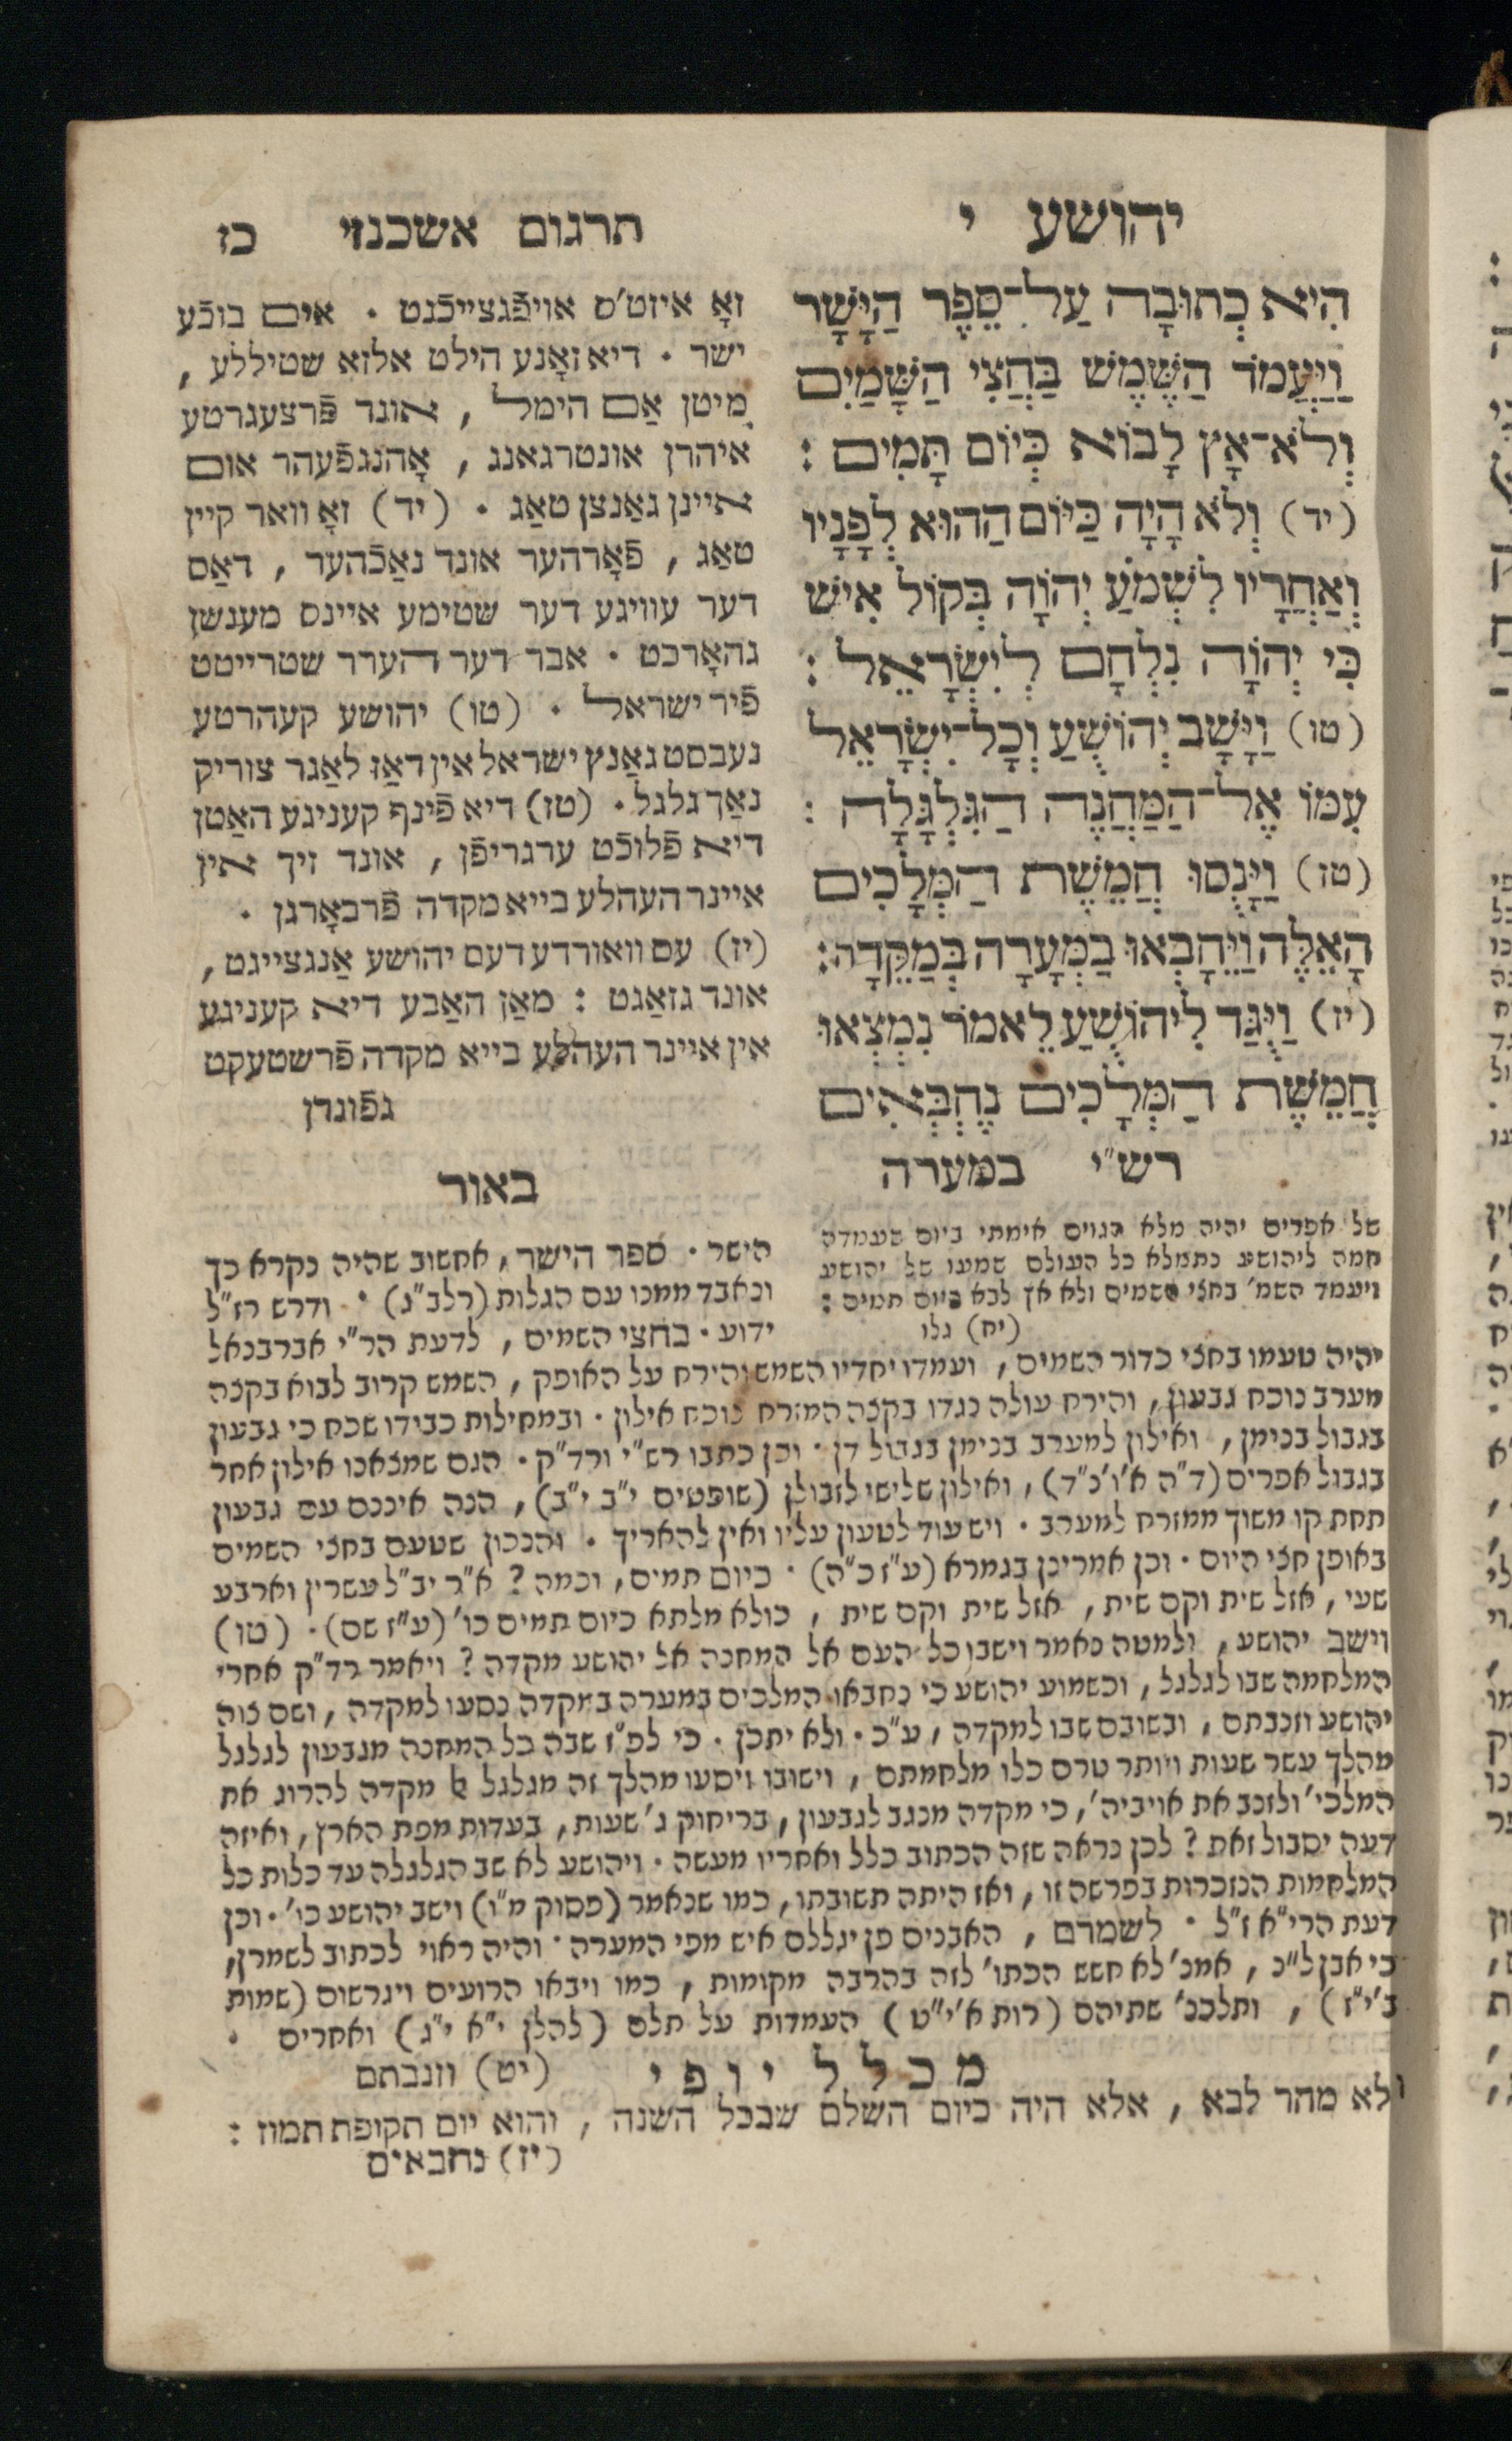 יהושע י
הִיא כְתוּבָה עַל־סֵפֶר הַיָּשָׁר
וַיַּעֲמֹד הַשֶּׁמֶשׁ בַּחֲצִי הַשָּׁמַיִם
וְלֹא־אָץ לָבוֹא כְּיוֹם תָּמִים :
(יד) וְלֹא הָיָה כַּיּוֹם הַהוּא לְפָנָיו
וְאַחֲרָיו לִשְׁמֹעַ יְהוָֹה בְּקוֹל אִישׁ
כִּי יְהוָֹה נִלְחָם לְיִשְׂרָאֵל :
(טו) וַיָּשָׁב יְהוֹשֻׁעַ וְכָל־יִשְׂרָאֵל
עִמּוֹ אֶל־הַמַּחֲנֶה הַגִּלְגָּלָה :
(טז) וַיָּנֻסוּ חֲמֵשֶׁת הַמְּלָכִים
הָאֵלֶּה וַיֵּחָבְאוּ בַמְּעָרָה בְּמַקֵּדָה:
(יז) וַיֻּגַּד לִיהוֹשֻׁעַ לֵאמֹר נִמְצְאוּ
חֲמֵשֶׁת הַמְּלָכִים נֶחְבְּאִים
רש"י במערה
של אפרים יהיה מלא הגוים אימתי ביום שעמדה
חמה ליהושע כתמלא כל העולם שמעו של יהושע
ויעמד השמ' בחצי השמים ולא אץ לבא כיום תמים :
(יח) גלו
תרגום אשכנזי כז
זאָ איזט'ס אויפֿגצייכֿנט . אים בוכֿע
ישר . דיא זאָנע הילט אלזא שטיללע ,
מיטן אַם הימל , אונד פֿרצעגרטע
איהרן אונטרגאנג , אָהנגפֿעהר אום
איינן גאַנצן טאַג . (יד) זאָ וואר קיין
טאַג , פֿאָרהער אונד נאַכֿהער , דאַס
דער עוויגע דער שטימע איינס מענשן
גהאָרכט . אבר דער הערר שטרייטט
פֿיר ישראל . (טו) יהושע קעהרטע
נעבסט גאַנץ ישראל אין דאַז לאַגר צוריק
נאַך גלגל . (טז) דיא פֿינף קעניגע האַטן
דיא פֿלוכֿט ערגריפֿן , אונד זיך אין
איינר העהלע בייא מקדה פֿרבאָרגן .
(יז) עס וואורדע דעם יהושע אַנגצייגט ,
אונד גזאַגט : מאַן האַבע דיא קעניגע
אין איינר העהלע בייא מקדה פֿרשטעקט
גפֿונדן
באור
הישר . ספר הישר, אחשוב שהיה נקרא כך
ונאבד ממנו עם הגלות (רלב"ג) . ודרש רז"ל
ידוע . בחצי השמים , לדעת הר"י אברבנאל
יהיה טעמו בחצי כדור השמים , ועמדו יחדיו השמש והירח על האופק , השמש קרוב לבוא בקצה
מערב נוכח גבעון, והירח עולה נגדו בקצה המזרח נוכח אילון . ובמחילות כבידו שכח כי גבעון
בגבול בנימן, ואילון למערב בנימן בגבול דן . וכן כתבו רש"י ורד"ק . הגם שמצאנו אילון אחר
בגבול אפרים (ד"ה א'ו'כ"ד) , ואילון שלישי לזבולן (שופטים י"ב י"ב), הנה איננם עם גבעון
תחת קו משוך ממזרח למערב . ויש עוד לטעון עליו ואין להאריך . והנכון שטעם בחצי השמים
באופן חצי היום . וכן אמרינן בגמרא (ע"ז כ"ה) . כיום תמים, וכמה ? א"ר יב"ל עשרין וארבע
שעי, אזל שית וקם שית, אזל שית וקם שית , כולא מלתא כיום תמים כו' (ע"ז שם) . (טו)
וישב יהושע, ולמטה נאמר וישבו כל העם אל המחנה אל יהושע מקדה ? ויאמר רד"ק אחרי
המלחמה שבו לגלגל , וכשמוע יהושע כי נחבאו המלכים במערה במקדה נסעו למקדה , ושם צוה
יהושע וזנבתם, ובשובם שבו למקדה , ע"כ . ולא יתכן . כי לפ"ז שבה כל המחנה מגבעון לגלגל
מהלך עשר שעות ויותר טרם כלו מלחמתם , וישובו ויסעו מהלך זה מגלגל אל מקדה להרוג את
המלכי' ולזנב את אויביה', כי מקדה מנגב לגבעון , בריחוק ג' שעות, בעדות מפת הארץ , ואיזה
דעה יסבול זאת ? לכן נראה שזה הכתוב כלל ואחריו מעשה . ויהושע לא שב הגלגלה עד כלות כל
המלחמות הנזכרות בפרשה זו , ואז היתה תשובתו , כמו שנאמר (פסוק מ"ו) וישב יהושע כו' . וכן
דעת הרי"א ז"ל . לשמרם , האבנים פן יגללם איש מפי המערה . והיה ראוי לכתוב לשמרן,
כי אבן ל"נ , אמנ' לא חשש הכתו' לזה בהרבה מקומות , כמו ויבאו הרועים ויגרשום (שמות
ב'י"ז) , ותלכנ' שתיהם (רות א'י"ט) העמדות על תלם (להלן י"א י"ג) ואחרים .
(יט) וזנבתם
מכלל יופי
ולא מהר לבא , אלא היה כיום השלם שבכל השנה , והוא יום תקופת תמוז :
(יז) נחבאים